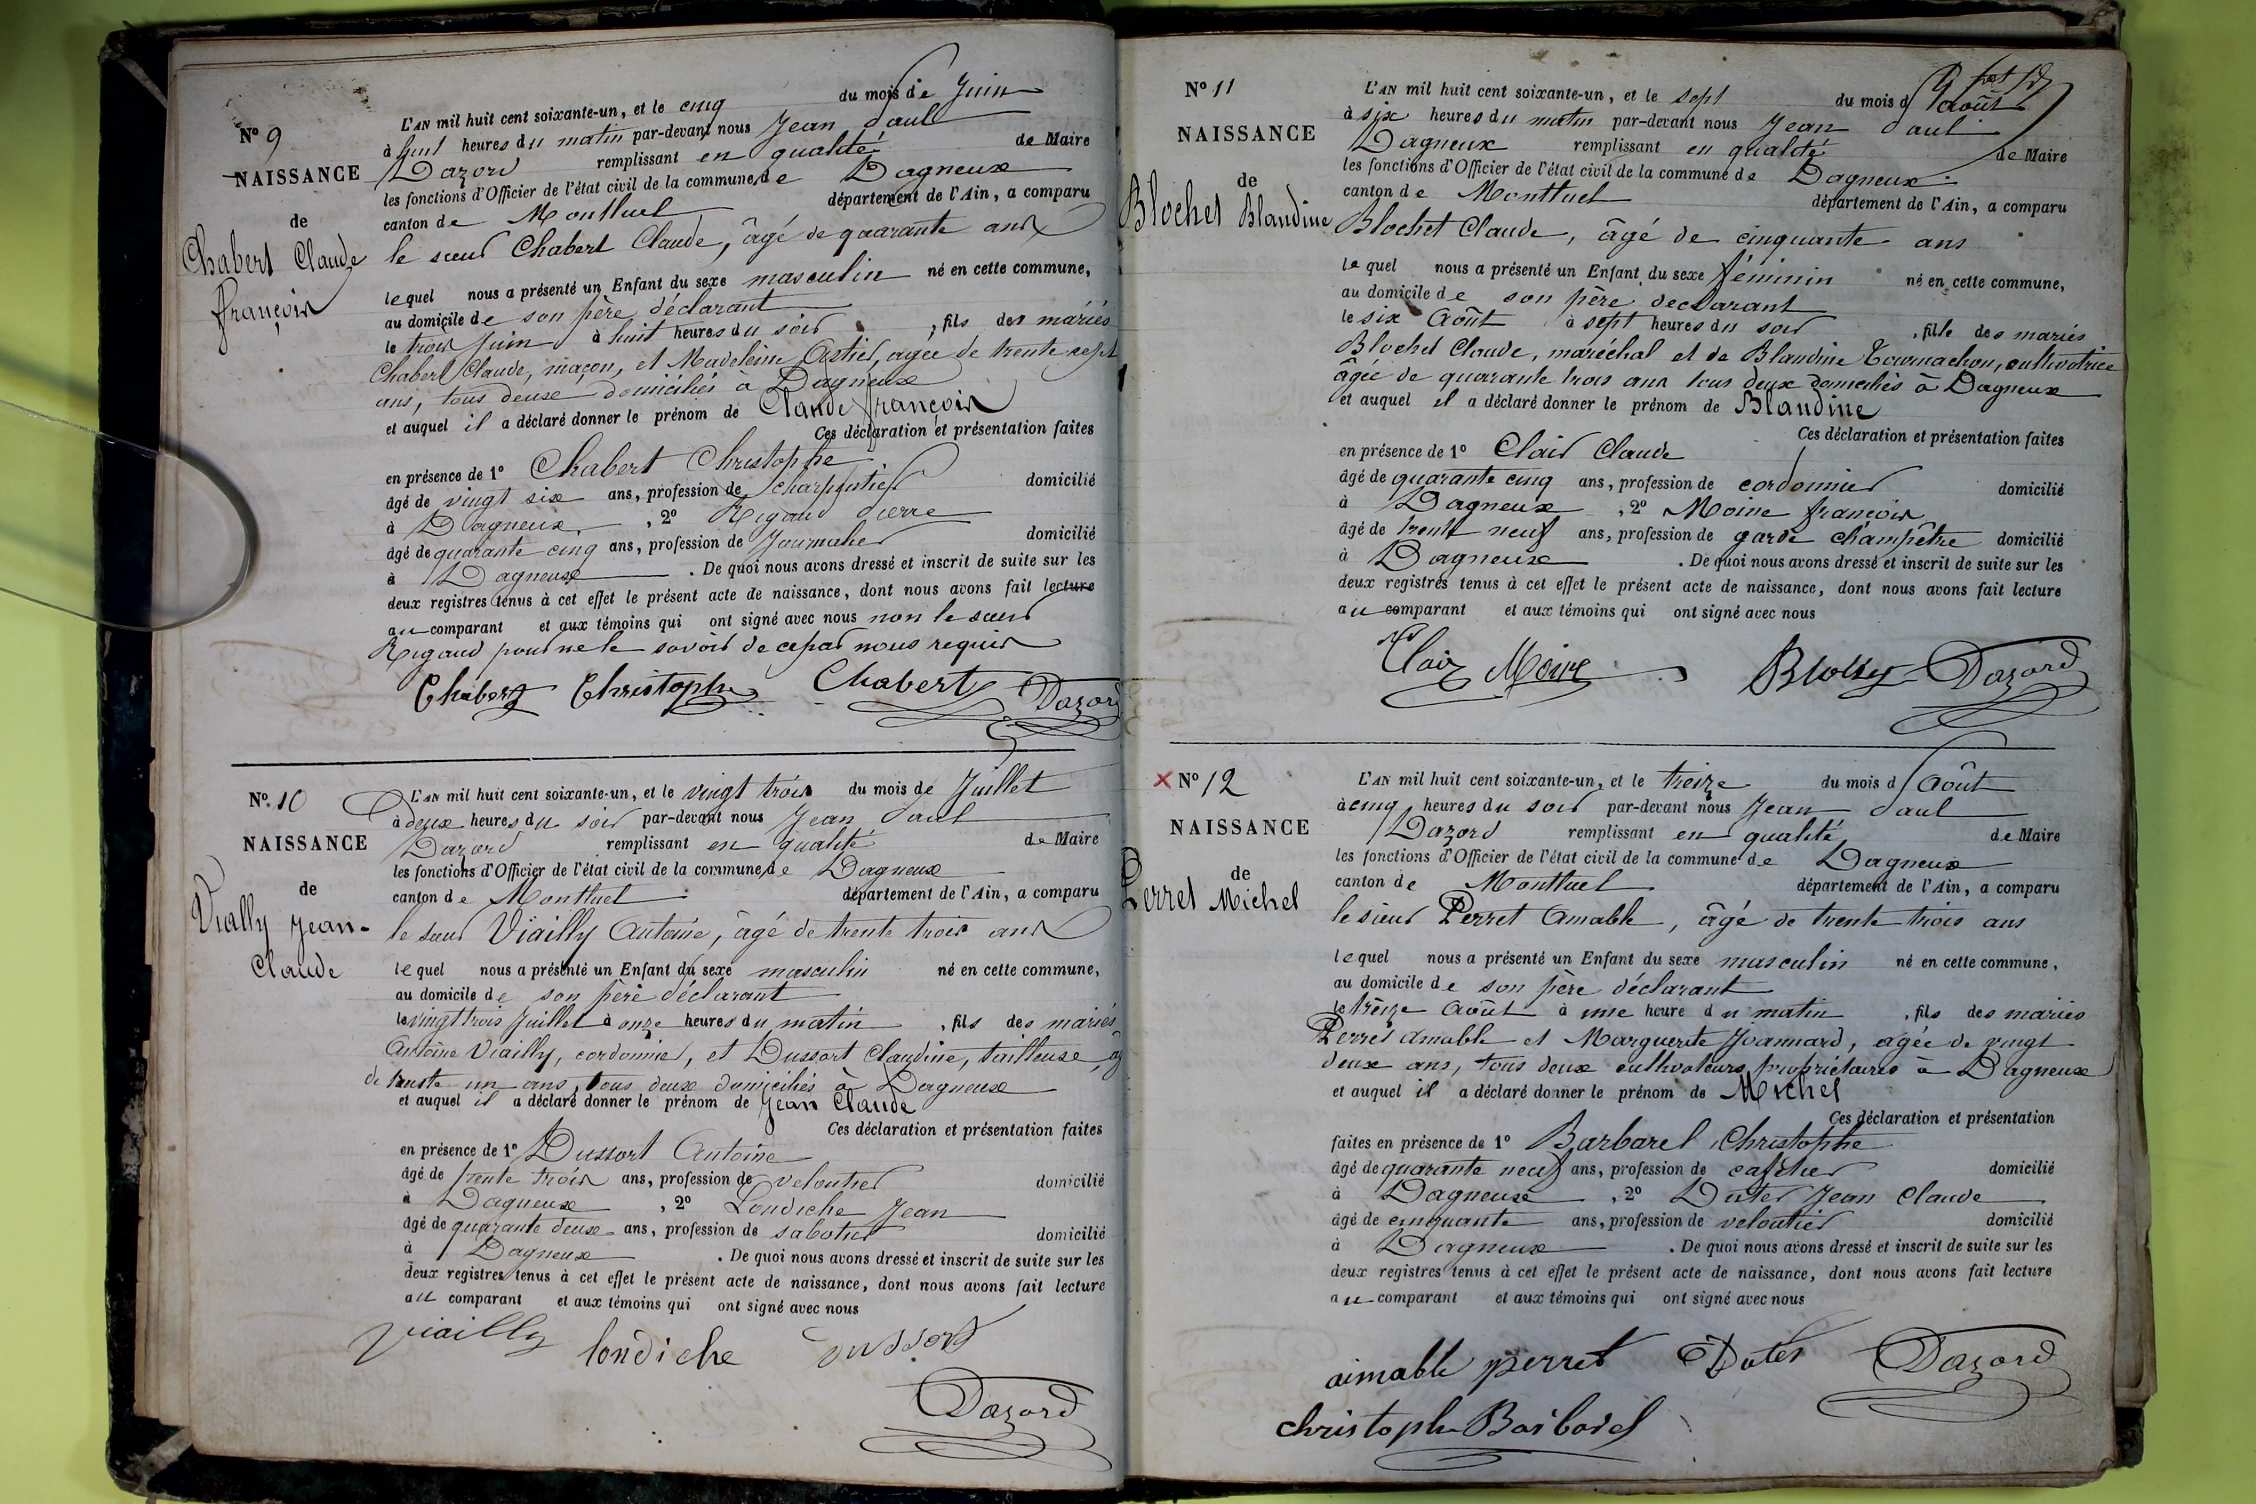 N° 9
NAISSANCE
de
Chabert Claude
françois
L'AN mil huit cent soixante-un, et le cinq du mois de Juin
à huit heures du matin par-devant nous Jean Paul
Dazord remplissant en qualité de Maire
les fonctions d'Officier de l'état civil de la commune de Dagneux
canton de Montluel département de l'Ain, a comparu
le sieur Chabert Claude, âgé de quarante ans
lequel nous a présenté un Enfant du sexe masculin né en cette commune,
au domicile de son père déclarant
le trois Juin à huit heures du soir, fils des mariés
Chabert Claude, maçon, et Madeleine Astier, agée de trente sept
ans, tous deux domiciliés a Dagneux
et auquel il a déclaré donner le prénom de Claude françois
Ces déclaration et présentation faites
en présence de 1° Chabert Christophe
âgé de vingt six ans, profession de charpentier domicilié
à Dagneux, 2° Rigaud Pierre
âgé de quarante cinq ans, profession de Journalier domicilié
à Dagneux. De quoi nous avons dressé et inscrit de suite sur les
deux registres tenus à cet effet le présent acte de naissance, dont nous avons fait lecture
au comparant et aux témoins qui ont signé avec nous non le sieur
Rigaud pour ne le savoir de ce par nous requis
Chabert Christophe Chabert Dazord
N° 10
NAISSANCE
de
Vially Jean-
Claude
L'AN mil huit cent soixante-un, et le vingt trois du mois de Juillet
à deux heures du soir par-devant nous Jean Paul
Dazord remplissant en qualité de Maire
les fonctions d'Officier de l'état civil de la commune de Dagneux
canton de Montluel département de l'Ain, a comparu
le sieur Viailly Antoine, âgé de trente trois ans
lequel nous a présenté un Enfant du sexe masculin né en cette commune,
au domicile de son père déclarant
le vingt trois Juillet à onze heures du matin, fils des mariés
Antoine Viailly, cordonnier, et Dussort Claudine, tailleuse, âg
de trente un ans, tous deux domiciliés à Dagneux
et auquel il a déclaré donner le prénom de Jean Claude
Ces déclaration et présentation faites
en présence de 1° Dussort Antoine
âgé de trente trois ans, profession de veloutier domicilié
à Dagneux, 2° Londiche Jean
âgé de quarante deux ans, profession de sabotier domicilié
à Dagneux. De quoi nous avons dressé et inscrit de suite sur les
deux registres tenus à cet effet le présent acte de naissance, dont nous avons fait lecture
au comparant et aux témoins qui ont signé avec nous
viailly londiche dussort
Dazord
N° 11
NAISSANCE
de
Blochet Blandine
L'AN mil huit cent soixante-un, et le sept du mois d'août
à six heures du matin par-devant nous Jean Paul
Dagneux remplissant en qualité de Maire
les fonctions d'Officier de l'état civil de la commune de Dagneux
canton de Montluel département de l'Ain, a comparu
Blochet Claude, âgé de cinquante ans
lequel nous a présenté un Enfant du sexe féminin né en cette commune,
au domicile de son père declarant
le six Août à sept heures du soir, fille des mariés
Blochet Claude, maréchal et de Blandine Tournachon, cultivatrice
âgée de quarante trois ans tous deux domiciliés à Dagneux
et auquel il a déclaré donner le prénom de Blandine
Ces déclaration et présentation faites
en présence de 1° Clair Claude
âgé de quarante cinq ans, profession de cordonnier domicilié
à Dagneux, 2° Moine françois
âgé de trente neuf ans, profession de garde champêtre domicilié
à Dagneux. De quoi nous avons dressé et inscrit de suite sur les
deux registres tenus à cet effet le présent acte de naissance, dont nous avons fait lecture
au comparant et aux témoins qui ont signé avec nous
Clair Moine Dazord
N° 12
NAISSANCE
de
Perret Michel
L'AN mil huit cent soixante-un, et le treize du mois d'Août
à cinq heures du soir par-devant nous Jean Paul
Dazord remplissant en qualité de Maire
les fonctions d'Officier de l'état civil de la commune de Dagneux
canton de Montluel département de l'Ain, a comparu
le sieur Perret Amable, âgé de trente trois ans
lequel nous a présenté un Enfant du sexe masculin né en cette commune,
au domicile de son père déclarant
le treize Août à une heure du matin, fils des mariés
Perret Amable et Marguerite Joannard, agée de vingt
deux ans, tous deux cultivateurs propriétaires à Dagneux
et auquel il a déclaré donner le prénom de Michel
Ces déclaration et présentation
faites en présence de 1° Barbarel Christophe
âgé de quarante neuf ans, profession de cafetier domicilié
à Dagneux, 2° Duter Jean Claude
âgé de cinquante ans, profession de veloutier domicilié
à Dagneux. De quoi nous avons dressé et inscrit de suite sur les
deux registres tenus à cet effet le présent acte de naissance, dont nous avons fait lecture
au comparant et aux témoins qui ont signé avec nous
aimable perret Duter Dazord
christophe Barbarel